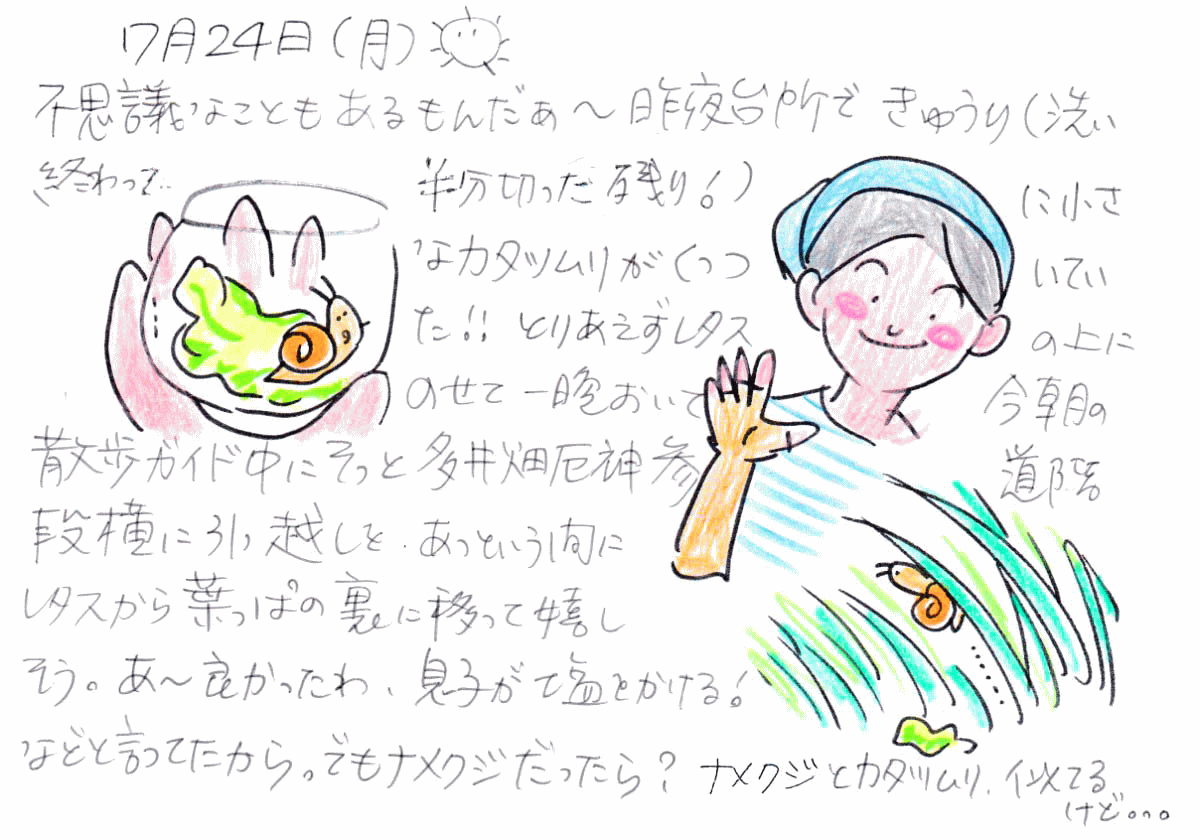 7月24日(月)
不思議なこともあるもんだぁ〜昨夜台所できゅうり(洗い
終わって‥ 半分切った残り!)に小さ
なカタツムリがくっついてい
た!!とりあえずレタスの上に
のせて一晩おいて今朝の
散歩ガイド中にそっと多井畑厄神参道階
段横に引っ越しと、あっという間に
レタスから葉っぱの裏に移って嬉し
そう。あ〜良かったわ、息子が塩をかける!
などと言ってたから。でもナメクジだったら?ナメクジとカタツムリ、似てる
けど...